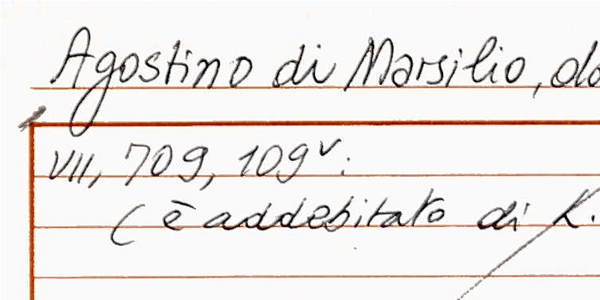 Agostino di Marsilio, da
VII, 709, 109v:
(è addebitato di L.